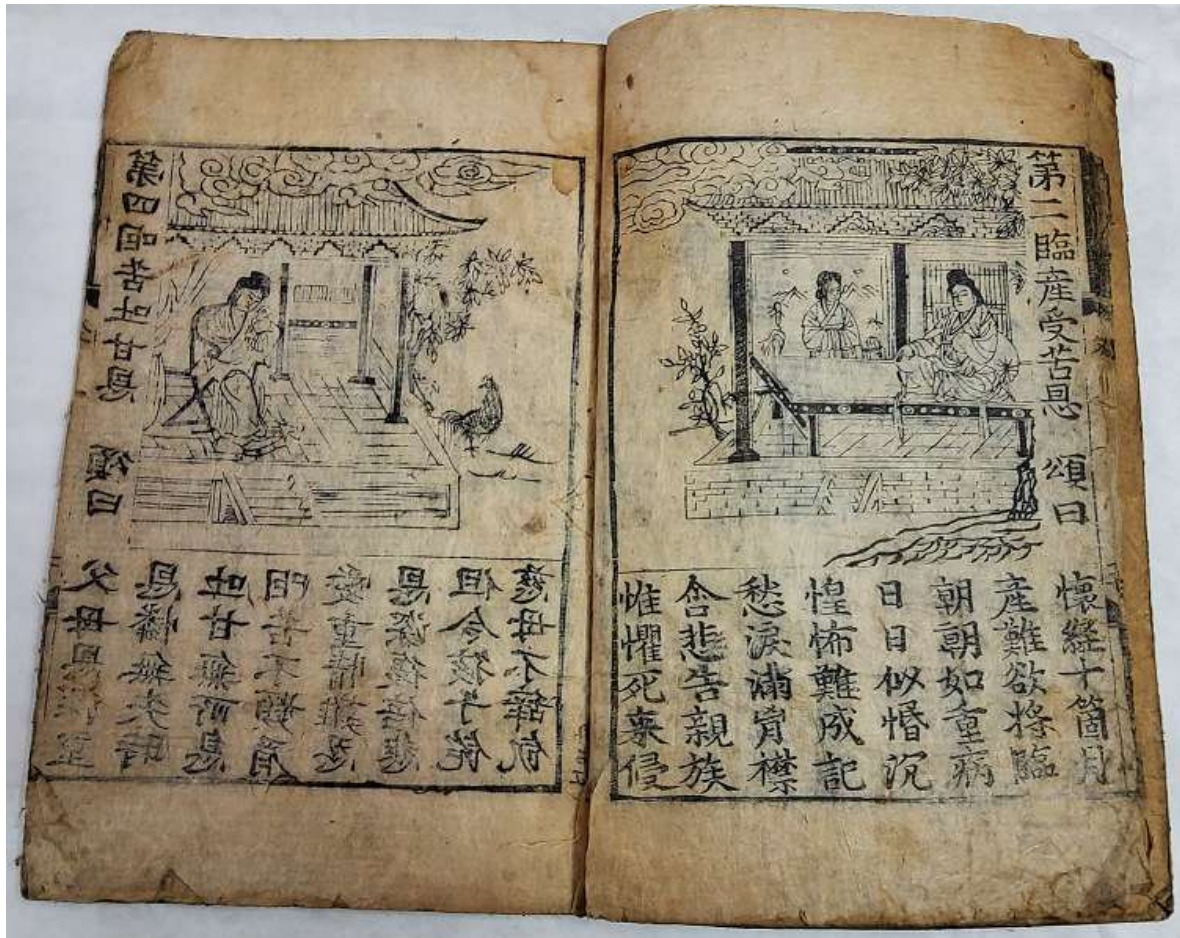 第二臨産受苦恩 頌曰
懷經十箇月
産難欲將臨
朝朝如重病
日日似惛沉
惶怖難成記
愁淚滿胷襟
含悲告親族
惟懼死來侵
第四咽苦吐甘恩 頌曰
父母恩深重
恩憐無失時
吐甘無所息
咽苦不顰眉
愛重情難忍
恩深復倍悲
但令孩子飽
慈母不辭飢